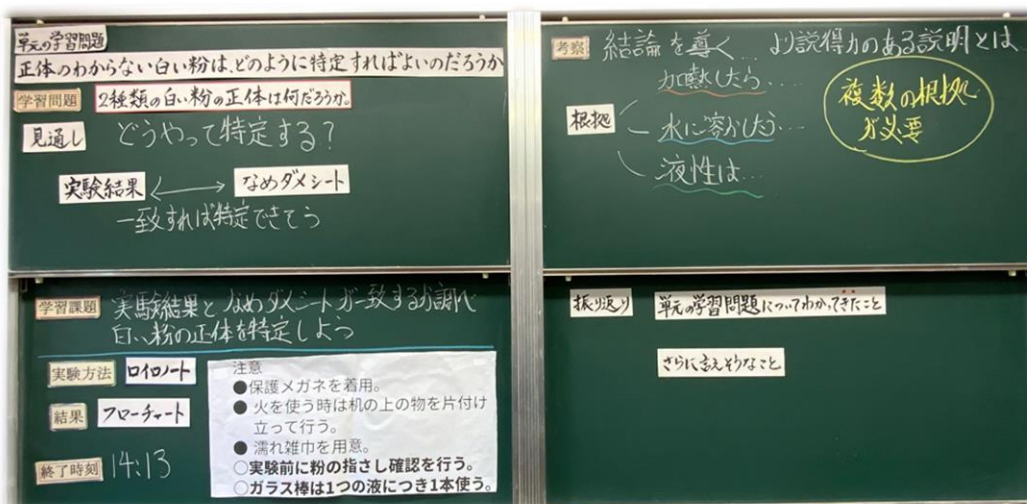 単元の学習問題
正体のわからない白い粉は、どのように特定すればよいのだろうか
学習問題 2種類の白い粉の正体は何だろうか。
見通し どうやって特定する?
実験結果 なめダメシート
一致すれば特定できそう
学習課題 実験結果となめダメシートが一致するか調べ
白い粉の正体を特定しよう
実験方法 ロイロノート
結果 フローチャート
終了時刻 14:13
注意
●保護メガネを着用。
●火を使う時は机の上の物を片付け
立って行う。
●濡れ雑巾を用意。
○実験前に粉の指さし確認を行う。
○ガラス棒は1つの液につき1本使う。
考察 結論を導く… より説得力のある説明とは
加熱したら…
根拠 水に溶かしたら…
液性は…
複数の根拠
が必要
振り返り 単元の学習問題についてわかってきたこと
さらに言えそうなこと